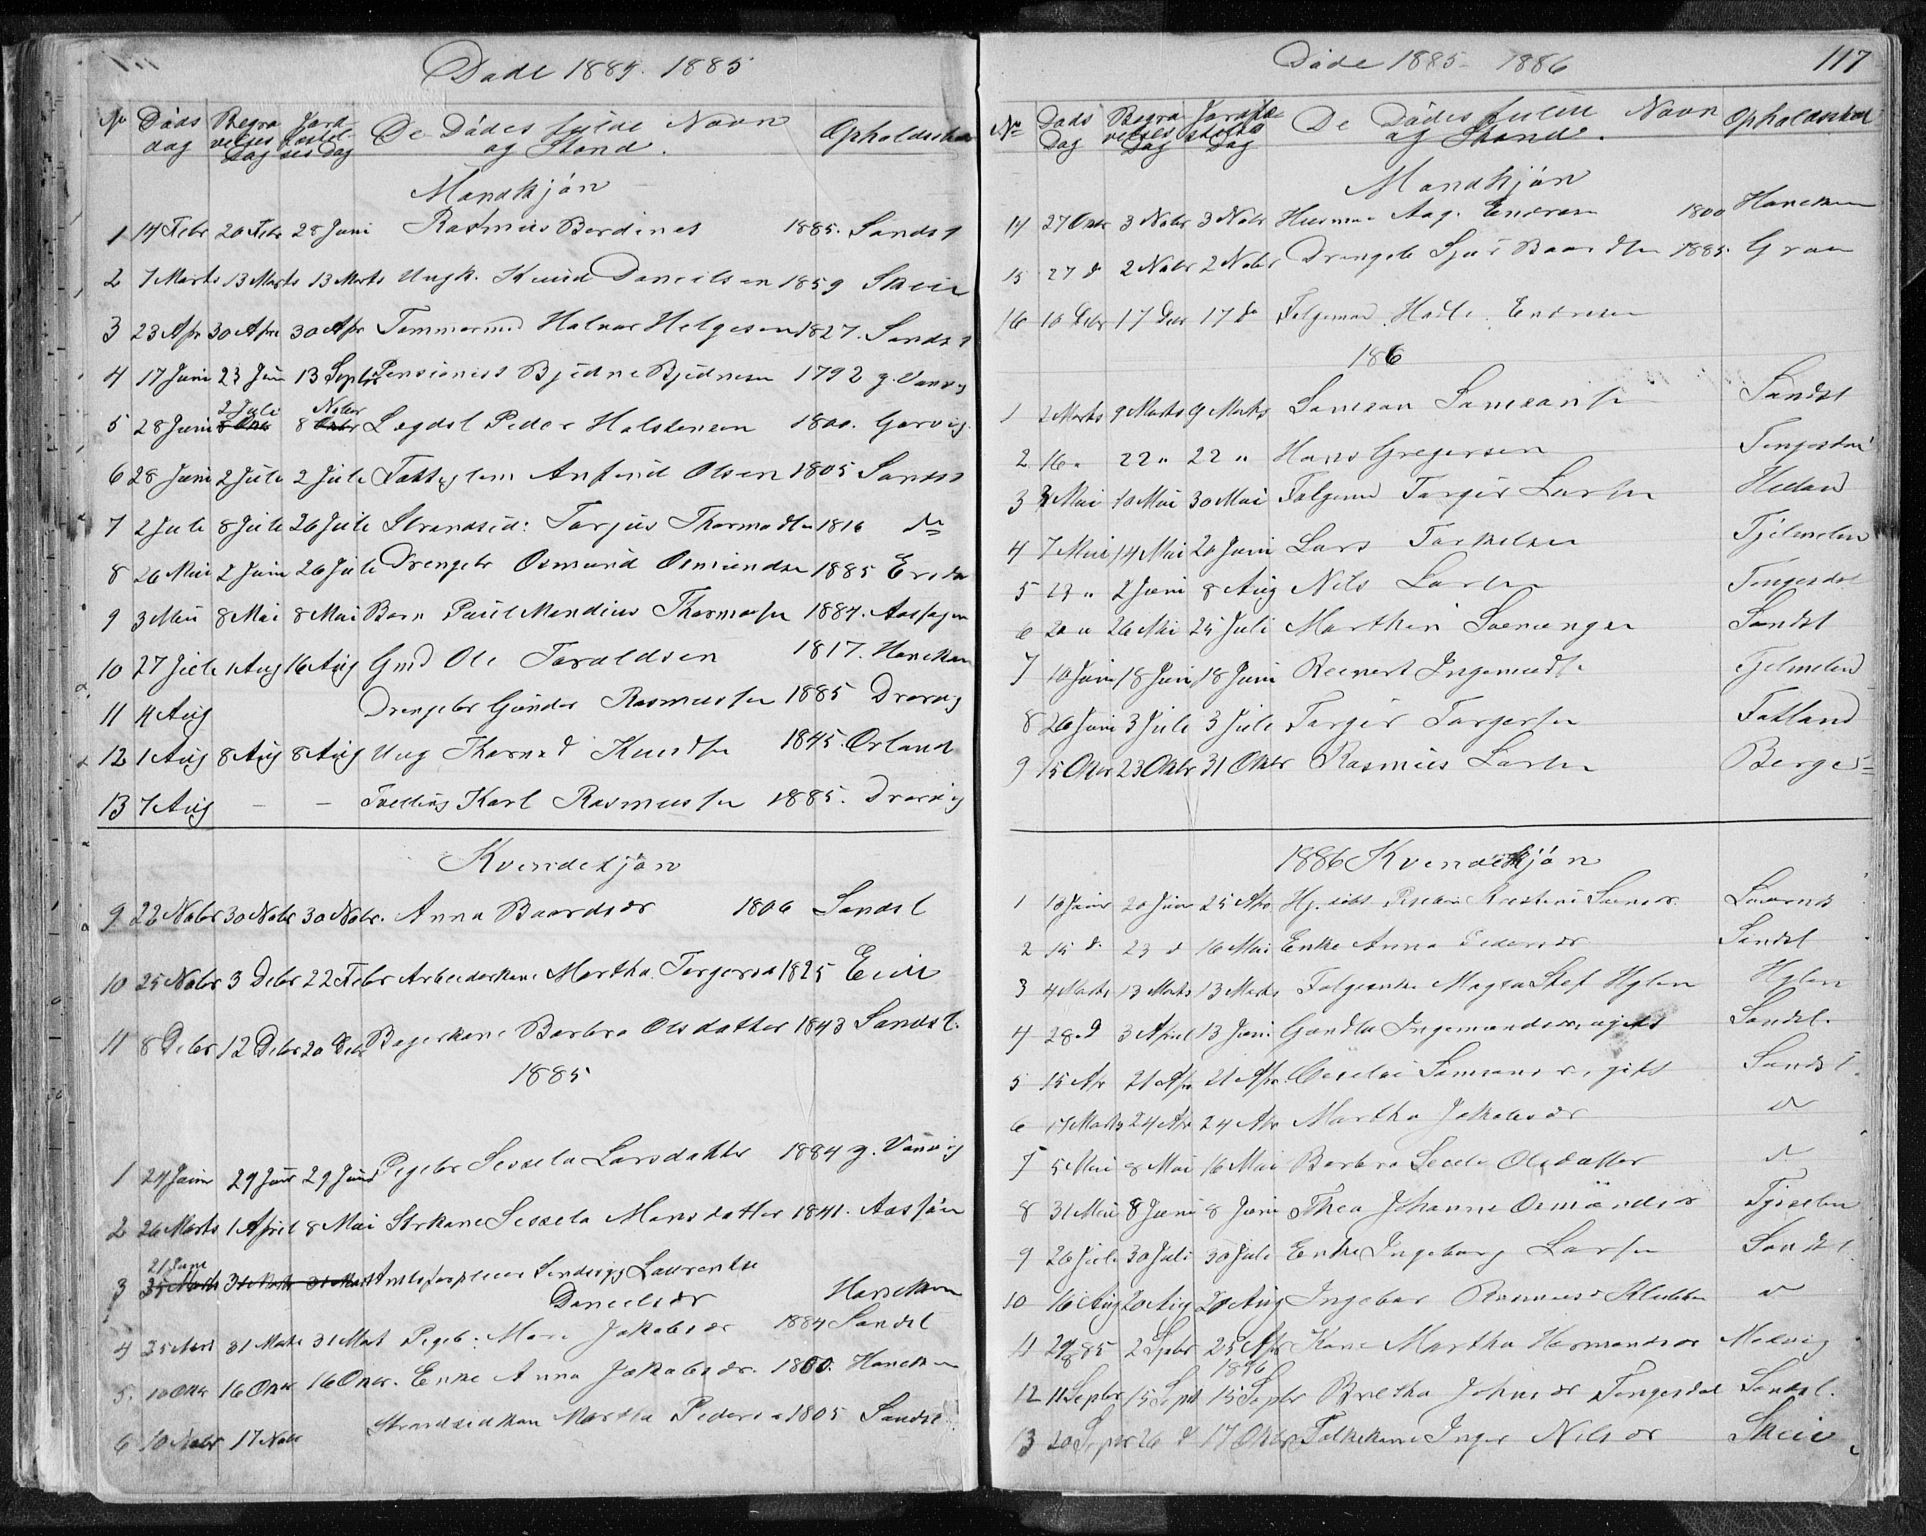 Døde 1884. 1885
No Døds dag Begravelses Dag Jordfæstelses Dag De Dødes fulde Navn og Stand. Opholdssted
Mandkjøn
1 14 Febr 20 Febr 28 Juni Rasmus Berdines 1885. Sandst
2 7 Marts 13 Marts 13 Marts Ungk. Knud Danielsen 1859 Skeie
3 23 Apr 30 Apr 30 Apr Tømmermd Halvor Helgesen 1827. Sandst
4 17 Juni 23 Jun 13 Septbr Pensionist Bjødne Bjødnesen 1792 y. Vansvig
5 28 Juni 2 Juli 8 Nobr Lægdsl Peder Halstensen 1800. Gjervig
6 28 Juni 2 Juli 2 Juli Fattiglem Anfind Olsen 1805 Sandst
7 2 Juli 8 Juli 26 Juli Strandsid: Torjus Thormodsen 1816 do
8 26 Mai 2 Juni 26 Juli Drengebr Osmund Osmundsen 1885 Eide
9 3 Mai 8 Mai 8 Mai Barn Paul Mandius Thormodsen 1884. Aashagen
10 27 Juli 1 Aug 16 Aug Gmd Ole Taraldsen 1817. Hanekam
11 4 Aug Drengebr Gunder Rasmussen 1885 Drarvig
12 1 Aug 8 Aug 8 Aug Ung Thorvd Knudsen 1845. Ørland
13 7 Aug – – Tvilling Karl Rasmussen 1885. Drarvig
Kvindekjøn
9 22 Nobr 30 Nobr 30 Nobr. Anna Baardsdr 1806 Sandst
10 25 Nobr 3 Debr 22 Febr Arbeiderkone Martha Torgersd 1825 Eide
11 8 Debr 12 Debr 20 Debr Bagerkone Barbra Olsdatter 1843 Sandst.
1885
1 24 Juni 29 Juni 29 Juni Pigebr Sessela Larsdatter 1884 y. Vansvig
2 26 Marts 1 April 8 Mai Strkone Sessela Monsdatter 1841. Aasjøen
3 21 June Laurentse Danielsdr Hanekam
4 25 Mart 31 Marts 31 Mart Pigeb: Mari Jakobsdr 1884 Sandst
5. 10 Okbr 16 Okbr 16 Okbr. Enke Anna Jakobsdr. 1800. Hanekam
6 10 Nobr 17 Nobr Strandsidkone Martha Pedersd 1805 Sandst
Døde 1885– 1886 117
No Døds Dag Begravelses Dag Jordfæstelses Dag De Dødes fulde Navn og Stand. Opholdssted
Mandkjøn
14 27 Okbr 3 Nobr 3 Nobr Huusmd Aag. Endresen 1800 Hanekam
15 27 d 2 Nobr 2 Nobr Drengeb Sjur Baardsen 1885. Graae
16 10 Debr 17 Debr 17 do Følgemd. Hadle. Endresen
1886
1 2 Marts 9 Marts 9 Marts Samson Samsonsen Sandst
2 16 „ 22 „ 22 „ Hans Gregersen Tengesdal
3 3 Mai 10 Mai 30 Mai Følgemd Torgir Larsen Hetland
4 7 Mai 14 Mai 20 Juni Lars Torkelsen Tjelmelen
5 27 „ 2 Juni 8 Aug Nils Larsen Tengesdal
6 20 „ 26 Mai 25 Juli Marthin Svenungsen Sandst
7 10 Juni 18 Juni 18 Juni Reinert Ingemundsen Tjelmelen
8 26 Juni 3 Juli 3 Juli Torger Torgersen Fatland
9 15 Okbr 23 Okbr 31 Okbr Rasmus Larsen Berge
1886 Kvindekjøn
1 10 Janr 20 Janr 25 Apr
2 15 d. 23 d 16 Mai Enke Anna Pedersdr Sandst
3 4 Marts 13 Marts 13 Marts Følgeenke Magta Stef Hylen Hylen
4 28 d 3 April 13 Juni Gundla Ingemundsdr, ugift Sandst.
5 15 Apr 21 Apr 21 Apr. Cecelie Samsonsdr ugift Sandst
6 17 Marts 24 Apr 24 Apr Martha Jakobsdr do
7 5 Mai 8 Mai 16 Mai Barbra Secele Olsdatter d.
8 31 Mai 8 Juni 8 Juni Thea Johanne Osmundsdr
9 26 Juli 30 Juli 30 Juli Enke Ingeborg Larsen Sandst
10 16 Aug 20 Aug 20 Aug Ingebor Rasmusd Kludsen do
11 29/8 85 2 Spbr 25 Apr 1886 Kone Martha Hermandsdr
12 11 Septbr 15 Sept 15 Septbr Bretha Johnsdr Tengesdal Sandst.
13 20 Septbr 26 d 17 Okbr Inger Nilsdr Skeie